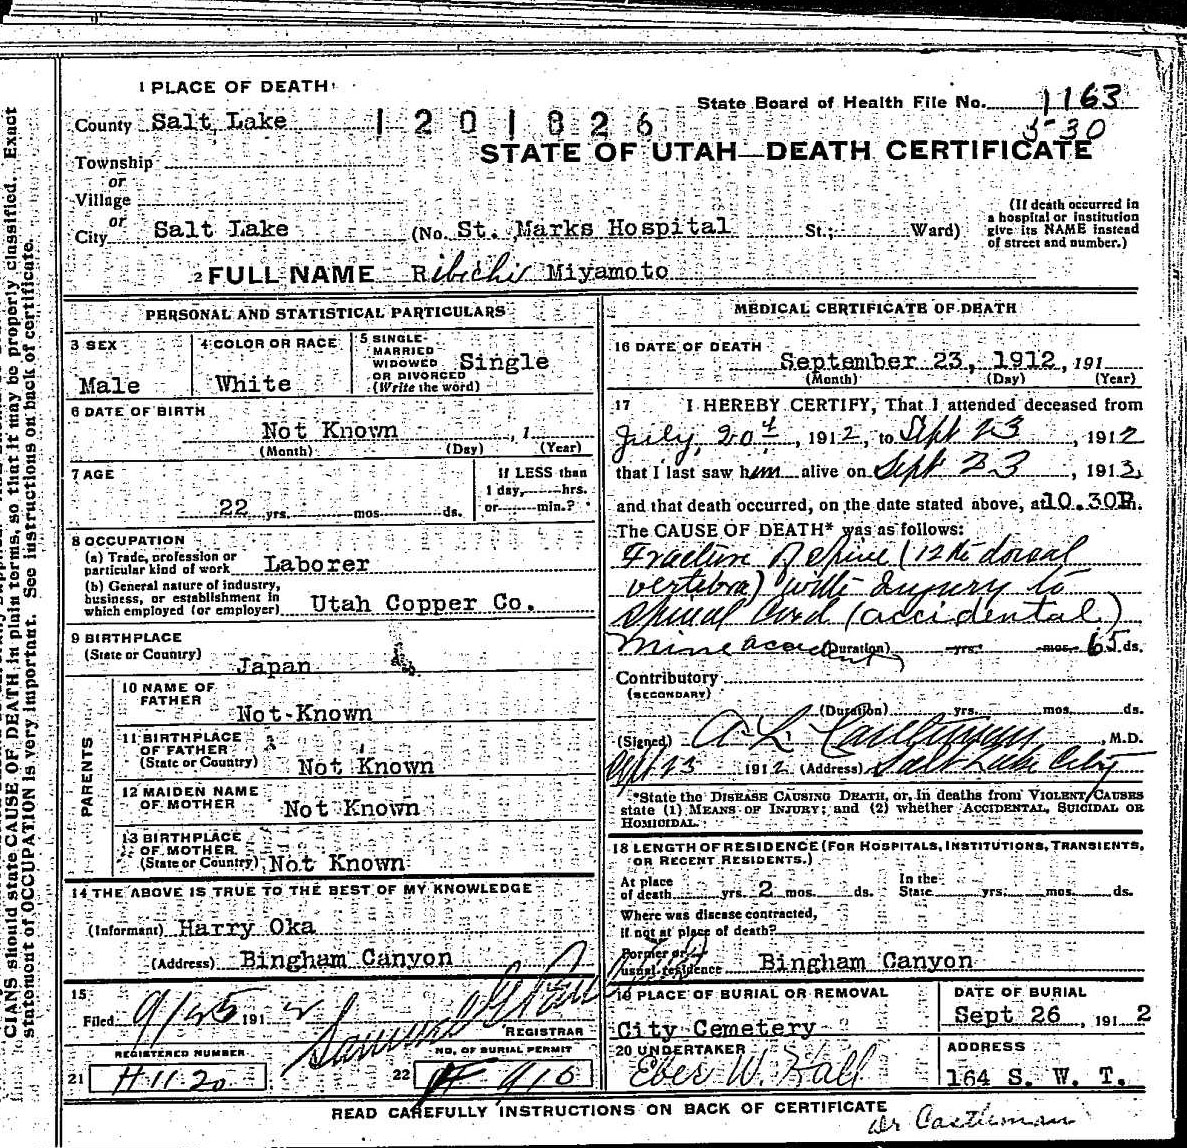 1 PLACE OF DEATH
State Board of Health File No. 1163
County Salt Lake 1201826
5-30
STATE OF UTAH—DEATH CERTIFICATE
Township
or
Village
or
City Salt Lake (No. St. Marks Hospital St.; Ward)
(If death occurred in a hospital or institution give its NAME instead of street and number.)
2 FULL NAME Ribichi Miyamoto
PERSONAL AND STATISTICAL PARTICULARS
3 SEX
Male
4 COLOR OR RACE
White
5 SINGLE
MARRIED
WIDOWED
OR DIVORCED
(Write the word)
Single
6 DATE OF BIRTH
Not Known , 1
(Month) (Day) (Year)
7 AGE
22 yrs. mos. ds.
If LESS than
1 day, hrs.
or min.?
8 OCCUPATION
(a) Trade, profession or
particular kind of work Laborer
(b) General nature of industry,
business, or establishment in
which employed (or employer) Utah Copper Co.
9 BIRTHPLACE
(State or Country)
Japan
PARENTS
10 NAME OF
FATHER
Not Known
11 BIRTHPLACE
OF FATHER
(State or Country) Not Known
12 MAIDEN NAME
OF MOTHER Not Known
13 BIRTHPLACE
OF MOTHER
(State or Country) Not Known
14 THE ABOVE IS TRUE TO THE BEST OF MY KNOWLEDGE
(Informant) Harry Oka
(Address) Bingham Canyon
15
Filed 9/25 191 2
REGISTRAR
REGISTERED NUMBER
21 H 1120
NO. OF BURIAL PERMIT
22 910
MEDICAL CERTIFICATE OF DEATH
16 DATE OF DEATH
September 23, 1912, 191
(Month) (Day) (Year)
17 I HEREBY CERTIFY, That I attended deceased from
July, 20th, 1912, to Sept 23, 1912
that I last saw him alive on Sept 23, 1912,
and that death occurred, on the date stated above, at 10.30P.m.
The CAUSE OF DEATH* was as follows:
Fracture of Spine (12th dorsal
vertebra) with Injury to
Spinal Cord (accidental)
Mine accident (Duration) yrs. mos. 65 ds.
Contributory
(SECONDARY)
(Duration) yrs. mos. ds.
(Signed) A L Castleman, M.D.
Sept 23 1912 (Address) Salt Lake City
*State the DISEASE CAUSING DEATH, or, in deaths from VIOLENT CAUSES
state (1) MEANS OF INJURY; and (2) whether ACCIDENTAL, SUICIDAL OR
HOMICIDAL.
18 LENGTH OF RESIDENCE (FOR HOSPITALS, INSTITUTIONS, TRANSIENTS,
OR RECENT RESIDENTS.)
At place
of death yrs. 2 mos. ds.
In the
State yrs. mos. ds.
Where was disease contracted,
if not at place of death?
Former or
usual residence Bingham Canyon
19 PLACE OF BURIAL OR REMOVAL
City Cemetery
DATE OF BURIAL
Sept 26, 191 2
20 UNDERTAKER
Eber W. Hall
ADDRESS
164 S. W. T.
READ CAREFULLY INSTRUCTIONS ON BACK OF CERTIFICATE
Dr Castleman
CIANS should state CAUSE OF DEATH in plain terms, so that it may be properly classified. Exact
statement of OCCUPATION is very important. See instructions on back of certificate.